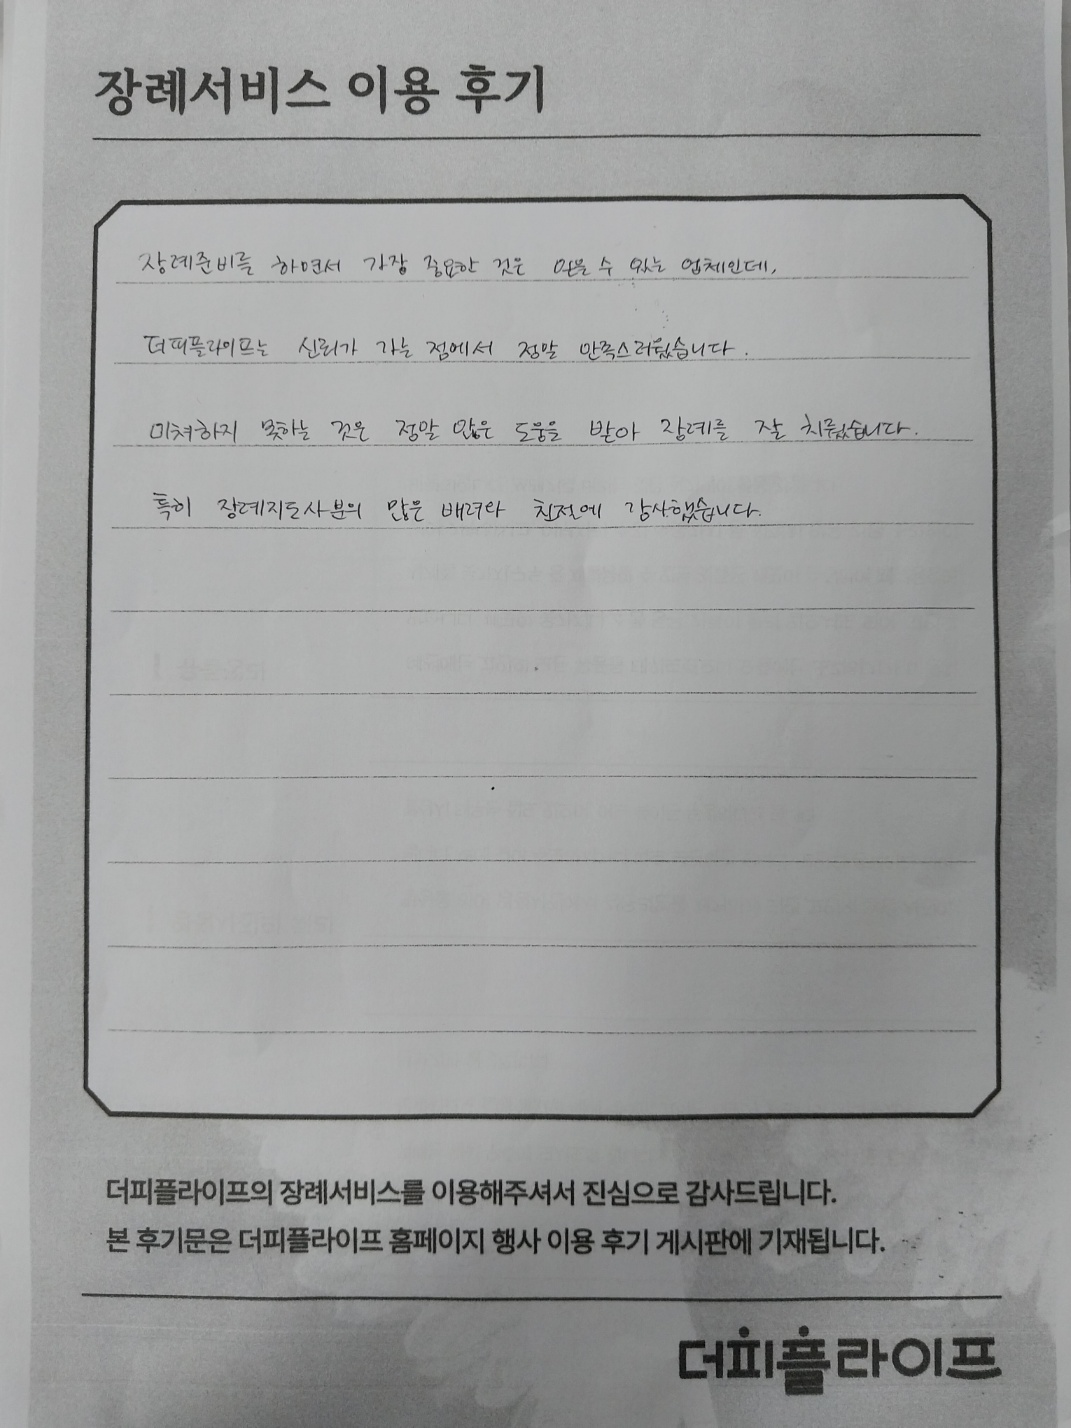 장례서비스 이용 후기
장례준비를 하면서 가장 중요한 것은 믿을 수 있는 업체인데,
더피플라이프는 신뢰가 가는 점에서 정말 만족스러웠습니다.
미쳐하지 못하는 것은 정말 많은 도움을 받아 장례를 잘 치뤘습니다.
특히 장례지도사분의 많은 배려와 친절에 감사했습니다.
더피플라이프의 장례서비스를 이용해주셔서 진심으로 감사드립니다.
본 후기문은 더피플라이프 홈페이지 행사 이용 후기 게시판에 기재됩니다.
더피플라이프